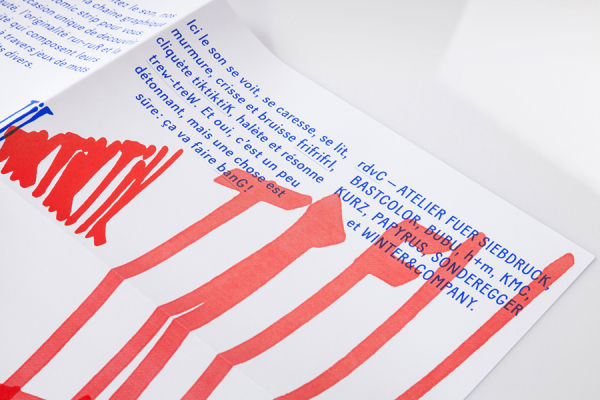 la chaîne graphique
comic strip pour vous
occasion unique de découvrir
l'originalité
qui composent leurs
à travers jeux de mots
divers.
Ici le son se voit, se caresse, se lit,
murmure, crisse et bruisse frifrifrI,
cliquète tiktiktiK, halète et résonne
trew-treW. Et oui, c'est un peu
détonnant, mais une chose est
sûre: ça va faire banG!
rdvC — ATELIER FUER SIEBDRUCK,
BASTCOLOR, BUBU, h+m, KMC,
KURZ, PAPYRUS, SONDEREGGER
et WINTER&COMPANY.